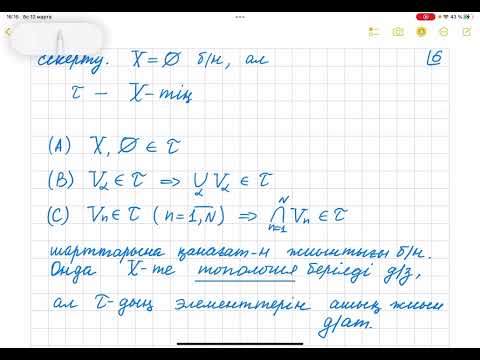 16:16 Вс 12 марта
43 %
ескерту. X = ∅ б/н, ал
6
τ – X-тің
(A) X, ∅ ∈ τ
(B) V_α ∈ τ ⇒ ∪_α V_α ∈ τ
(C) V_n ∈ τ (n = \overline{1, N}) ⇒ ⋂_{n=1}^{N} V_n ∈ τ
шарттарына қанағат-н жиынтығы б/н.
Онда X-те топология беріледі д/з,
ал τ-дың элементтерін ашық жиын
д/ат.